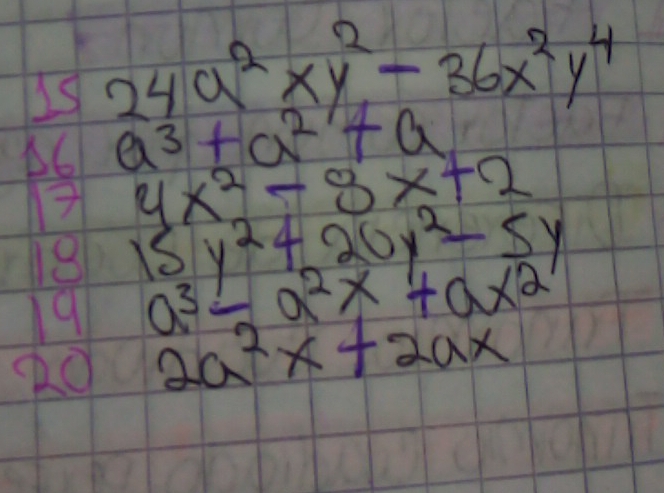 15 24a²xy² - 36x²y⁴
16 a³ + a² + a
17 4x² - 8x + 2
18 15y² + 20y² - 5y
19 a³ - a²x + ax²
20 2a²x + 2ax